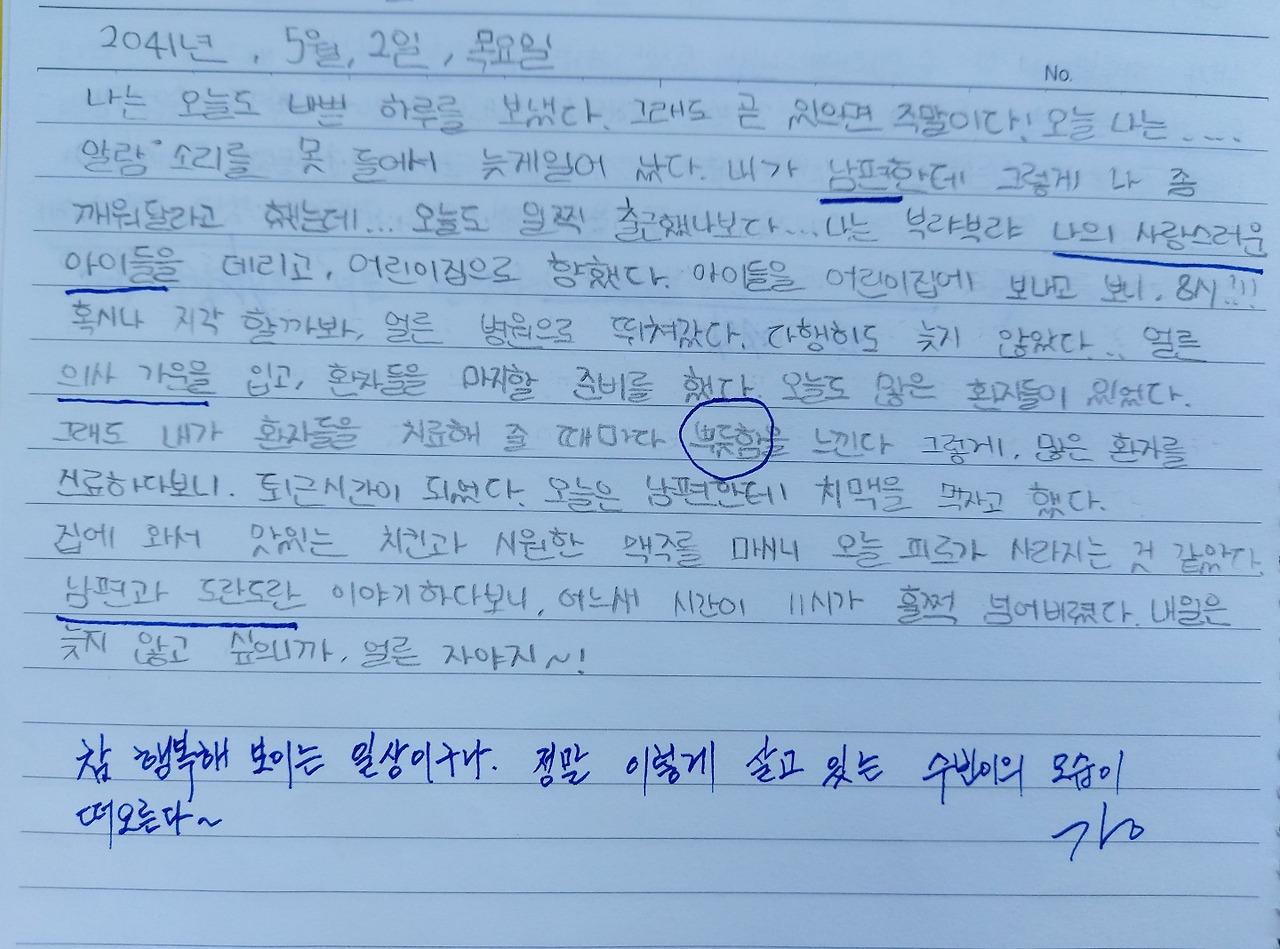 2041년, 5월, 2일, 목요일
No.
나는 오늘도 내쁜 하루를 보냈다. 그래도 곧 있으면 주말이다! 오늘 나는....
알람 소리를 못 들어서 늦게일어 났다. 내가 남편한테 그렇게 나 좀
깨워달라고 했는데... 오늘도 일찍 출근했나보다... 나는 부랴부랴 나의 사랑스러운
아이들을 데리고, 어린이집으로 향했다. 아이들을 어린이집에 보내고 보니, 8시!!!
혹시나 지각 할까봐, 얼른 병원으로 뛰쳐갔다. 다행히도 늦지 않았다... 얼른
의사 가운을 입고, 환자들을 마지할 준비를 했다. 오늘도 많은 환자들이 있었다.
그래도 내가 환자들을 치료해 줄 때마다 뿌듯함을 느낀다 그렇게, 많은 환자를
진료하다보니. 퇴근시간이 되었다. 오늘은 남편한테 치맥을 먹자고 했다.
집에 와서 맛있는 치킨과 시원한 맥주를 마시니 오늘 피로가 사라지는 것 같았다.
남편과 도란도란 이야기하다보니, 어느새 시간이 11시가 훌쩍 넘어버렸다. 내일은
늦지 않고 싶으니까, 얼른 자야지~!
참 행복해 보이는 일상이구나. 정말 이렇게 살고 있는 수빈이의 모습이
떠오른다~